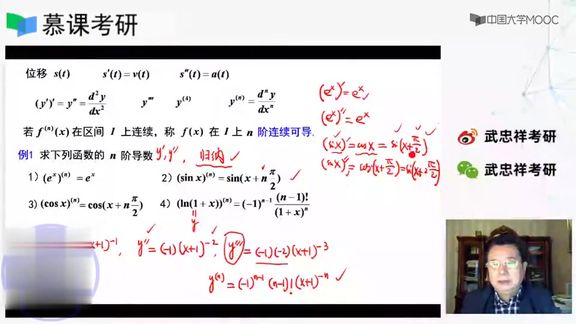 慕课考研
中国大学MOOC
位移 s(t) s'(t) = v(t) s''(t) = a(t)
(y')' = y'' = d²y/dx² y''' y⁽⁴⁾ y⁽ⁿ⁾ = dⁿy/dxⁿ
若 f⁽ⁿ⁾(x) 在区间 I 上连续, 称 f(x) 在 I 上 n 阶连续可导.
例1 求下列函数的 n 阶导数 y', y'', 归纳 ✓
1) (eˣ)⁽ⁿ⁾ = eˣ 2) (sin x)⁽ⁿ⁾ = sin(x + n π/2) ✓
3) (cos x)⁽ⁿ⁾ = cos(x + n π/2) 4) (ln(1 + x))⁽ⁿ⁾ = (-1)ⁿ⁻¹ (n - 1)!/(1 + x)ⁿ
y
x+1)⁻¹, y'' = (-1)(x+1)⁻², y''' = (-1)(-2)(x+1)⁻³
y⁽ⁿ⁾ = (-1)ⁿ⁻¹ (n-1)! (x+1)⁻ⁿ ✓
(eˣ)' = eˣ ✓
(eˣ)'' = eˣ
(sin x)' = cos x = sin(x + π/2)
(sin x)'' = cos(x + π/2) = sin(x + 2 π/2)
武忠祥考研
武忠祥考研